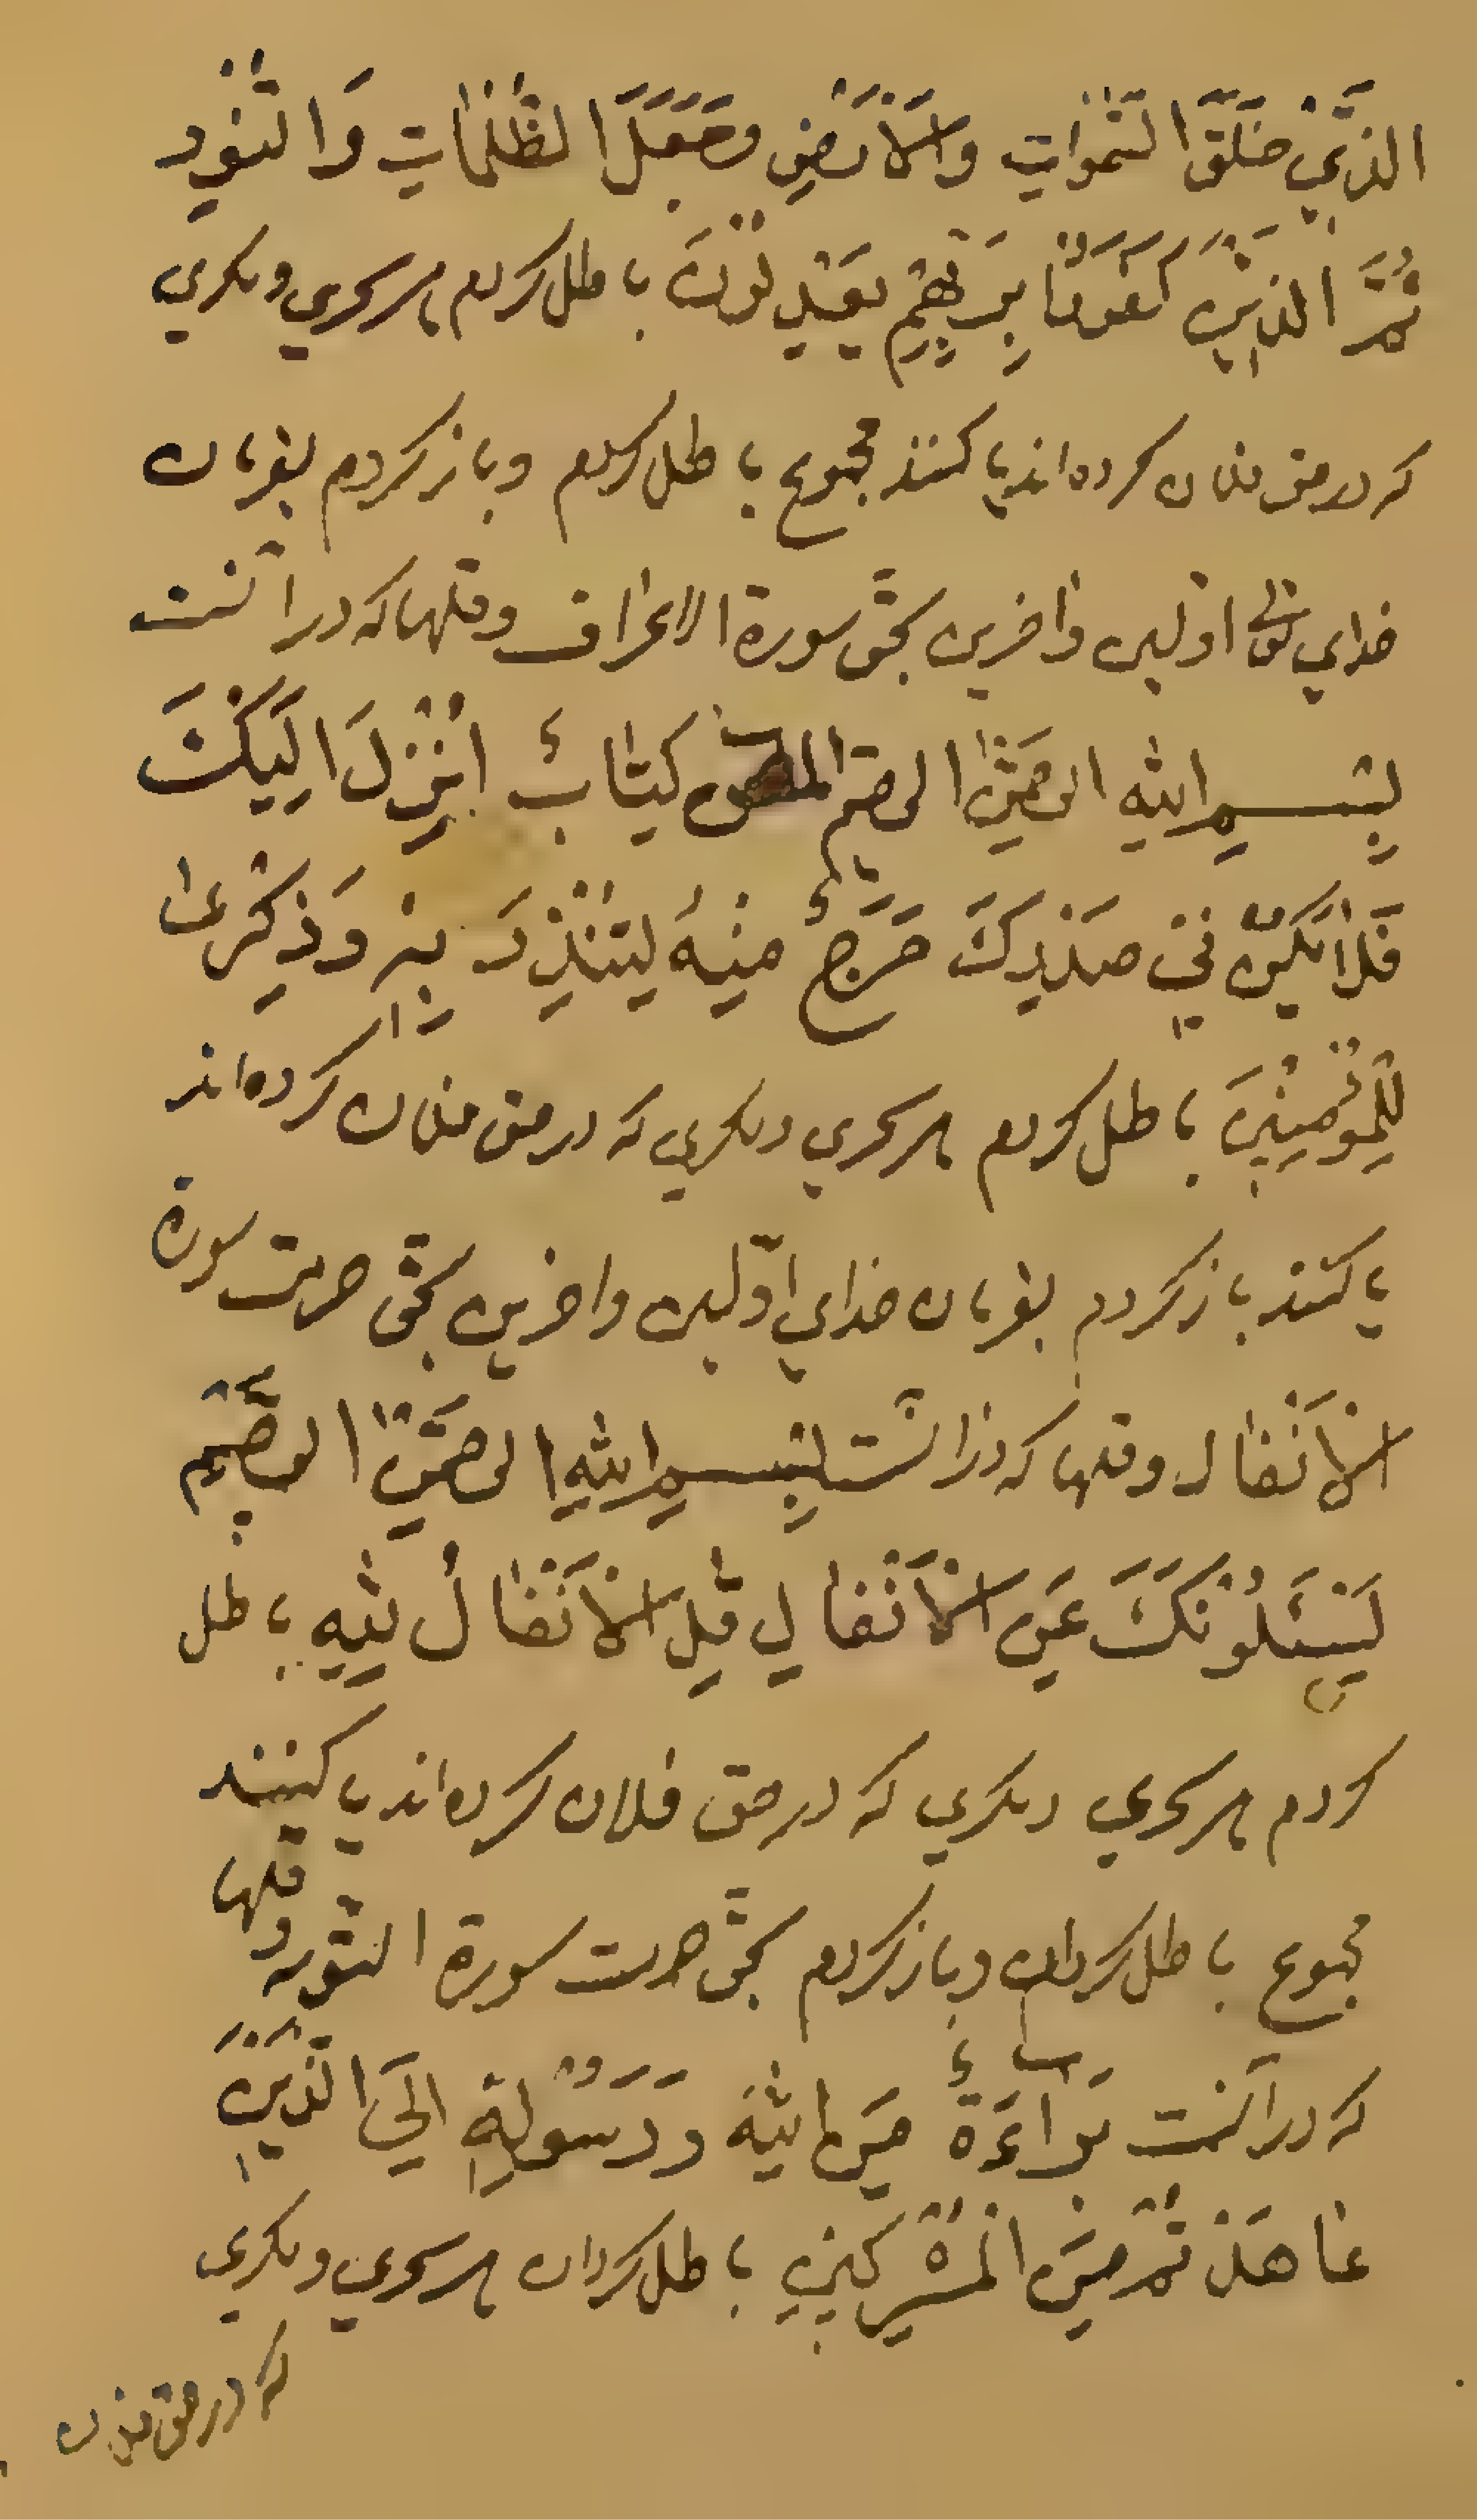 الَّذِيْ خَلَقَ السَّمٰوَاتِ وَالْاَرْضِ وَجَعَلَ الظُّلُمَاتِ وَالنُّوْرِ
ثُمَّ الَّذِيْنَ كَفَرُوْا بِرَبِّهِمْ يَعْدِلُوْنَ باطل کردم هر سحری ومکری
که در حق فلان کرده‌اند یا کنند مجموع باطل کردم وباز کردم بفرمان
خدای تعالی اولین واخرین بحق سورة الاعراف وقلها که در انست
بِسْمِ اللّٰهِ الرَّحْمٰنِ الرَّحِيْمِ المص كِتَابٌ اُنْزِلَ اِلَيْكَ
فَلَا يَكُنْ فِيْ صَدْرِكَ حَرَجٌ مِنْهُ لِتُنْذِرَ بِهِ وَذِكْرٰى
لِلْمُؤْمِنِيْنَ باطل کردم هر سحری ومکری که در حق فلان کرده‌اند
یا کنند باز کردم بفرمان خدای اوّلین واخرین بحق حرمت سورة
الْاَنْفَال وقلها که در انست بِسْمِ اللّٰهِ الرَّحْمٰنِ الرَّحِيْمِ
يَسْئَلُوْنَكَ عَنِ الْاَنْفَالِ قُلِ الْاَنْفَالُ لِلّٰهِ باطل
کردم هر سحری ومکری که در حق فلان کرده‌اند یا کنند
مجموع باطل کردم وباز کردم بحق حرمت سورة التوبه وقلها
که در انست بَرَاءَةٌ مِنَ اللّٰهِ وَرَسُوْلِهِ اِلَى الَّذِيْنَ
عَاهَدْتُمْ مِنَ الْمُشْرِكِيْنَ باطل کردم هر سحری ومکری
که در حق فلان